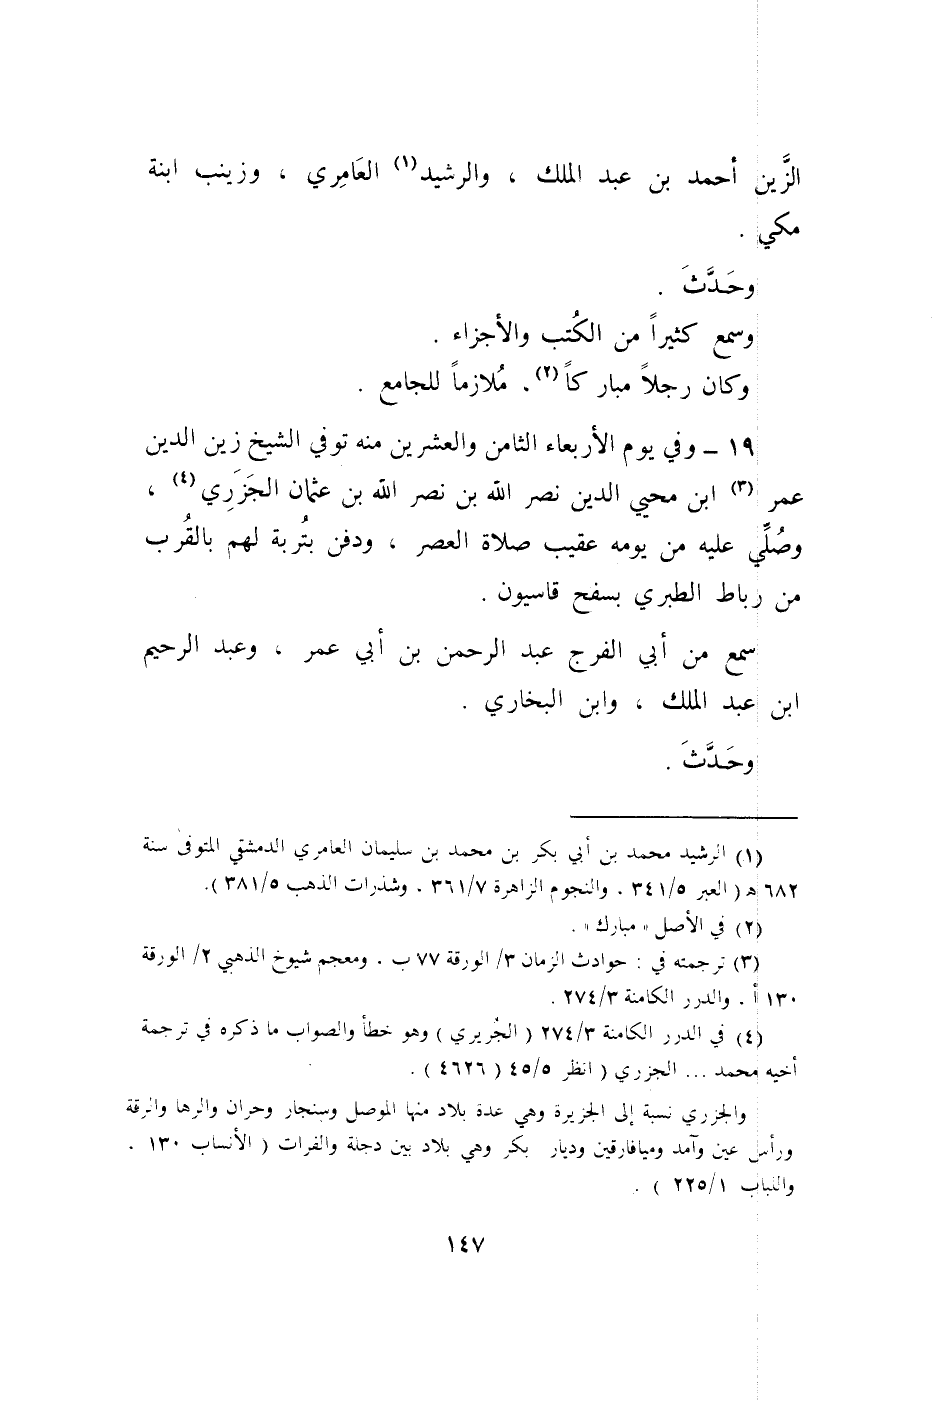 الزَّين أحمد بن عبد الملك ، والرشيد(١) العَامِري ، وزينب ابنة
مكي .
وحَدَّثَ .
وسمع كثيراً من الكُتب والأجزاء .
وكان رجلاً مباركاً(٢). مُلازماً للجامع .
١٩ ـ وفي يوم الأربعاء الثامن والعشرين منه توفي الشيخ زين الدين
عمر (٣) ابن محيي الدين نصر الله بن نصر الله بن عثمان الجَزَري(٤) ،
وصُلِّي عليه من يومه عقيب صلاة العصر ، ودفن بتُربة لهم بالقُرب
من رباط الطبري بسفح قاسيون .
سمع من أبي الفرج عبد الرحمن بن أبي عمر ، وعبد الرحيم
ابن عبد الملك ، وابن البخاري .
وحَدَّثَ .
(١) الرشيد محمد بن أبي بكر بن محمد بن سليمان العامري الدمشقي المتوفى سنة
٦٨٢ هـ ( العبر ٣٤١/٥ . والنجوم الزاهرة ٣٦١/٧ . وشذرات الذهب ٣٨١/٥ ).
(٢) في الأصل « مبارك » .
(٣) ترجمته في : حوادث الزمان ٣/ الورقة ٧٧ ب . ومعجم شيوخ الذهبي ٢/ الورقة
١٣٠ أ . والدرر الكامنة ٢٧٤/٣ .
(٤) في الدرر الكامنة ٢٧٤/٣ ( الجُريري ) وهو خطأ والصواب ما ذكره في ترجمة
أخيه محمد ... الجزري ( انظر ٤٥/٥ ( ٤٦٢٦ ) .
والجزري نسبة إلى الجزيرة وهي عدة بلاد منها الموصل وسنجار وحران والرها والرقة
ورأس عين وآمد وميافارقين وديار بكر وهي بلاد بين دجلة والفرات ( الأنساب ١٣٠ .
واللباب ٢٢٥/١ ) .
١٤٧